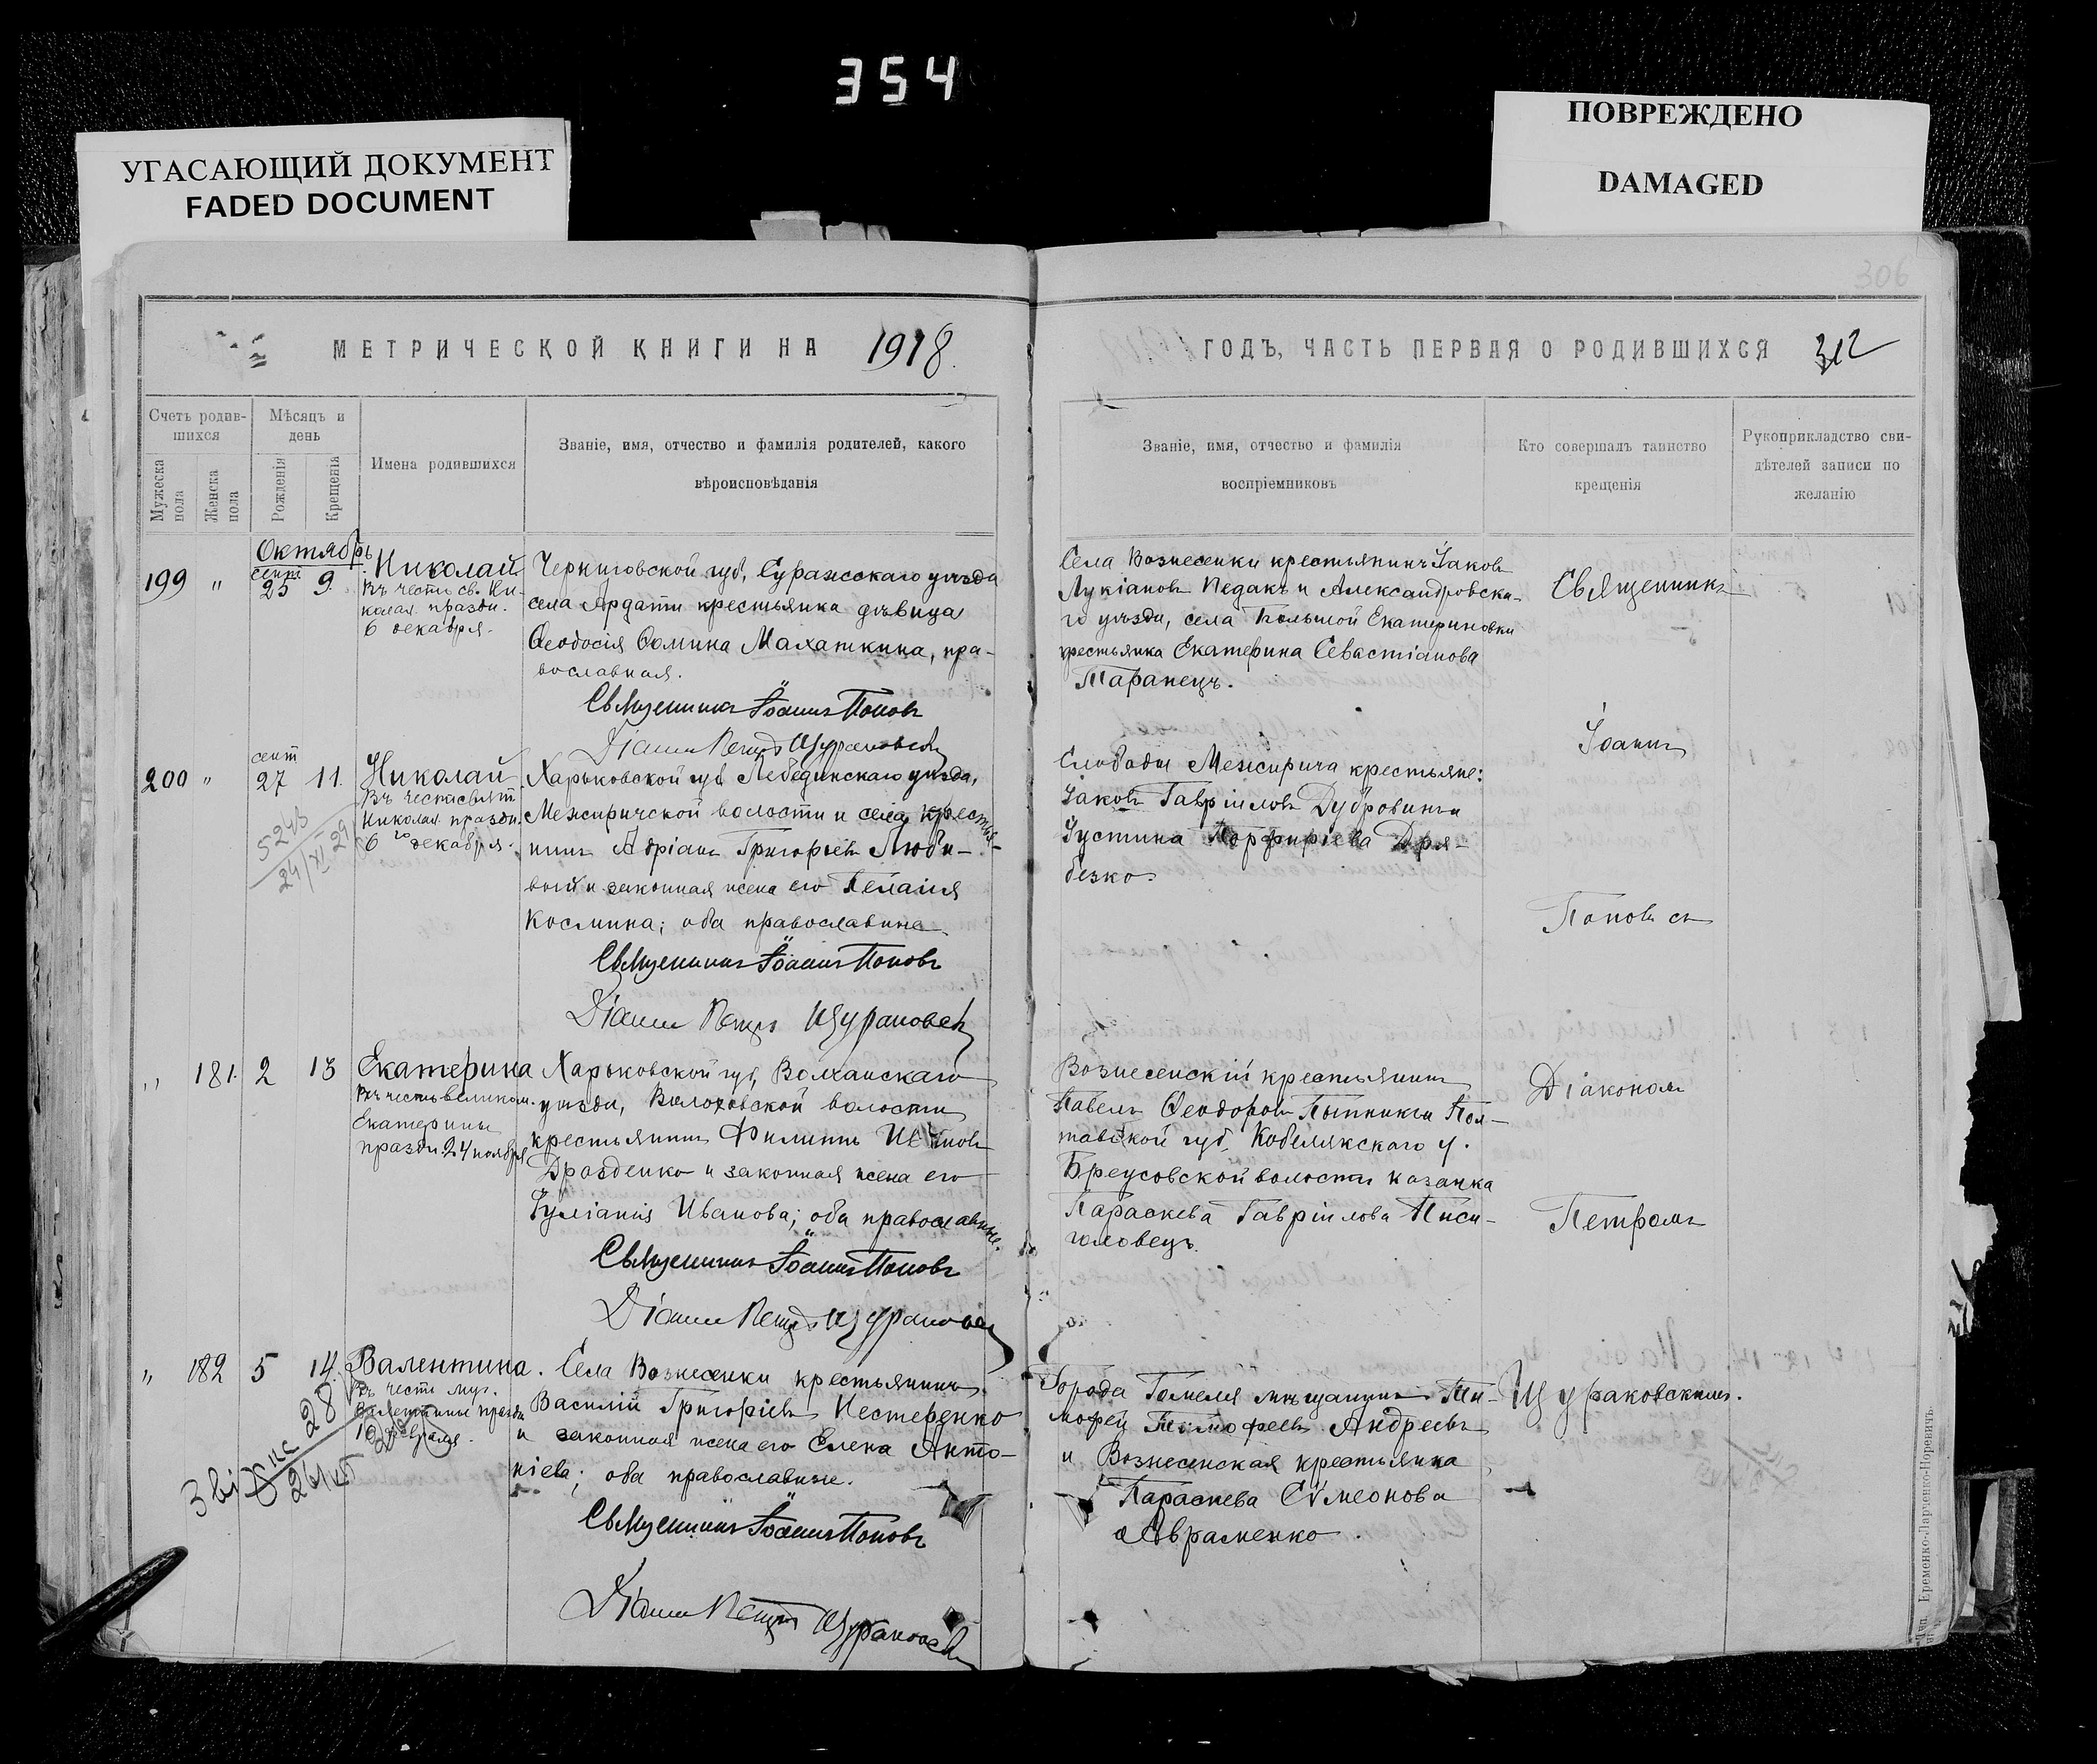 354
УГАСАЮЩИЙ ДОКУМЕНТ
FADED DOCUMENT
ПОВРЕЖДЕНО
DAMAGED
306
МЕТРИЧЕСКОЙ КНИГИ НА 1918
ГОДЪ, ЧАСТЬ ПЕРВАЯ О РОДИВШИХСЯ 312
Счетъ родив-
шихся
Мужеска пола
Женска пола
Мѣсяцъ и
день
Рожденія
Крещенія
Имена родившихся
Званіе, имя, отчество и фамилія родителей, какого
вѣроисповѣданія
Званіе, имя, отчество и фамилія
воспріемниковъ
Кто совершалъ таинство
крещенія
Рукоприкладство сви-
дѣтелей записи по
желанію
Октябрь
199 " сент 25 9. Николай
Въ честь св. Ни-
колая праздн.
6 декабря.
Черниговской губ, Суражскаго уѣзда
села Ардати крестьянка дѣвица
Ѳеодосія Ѳомина Махаткина, пра-
вославная.
Священникъ Іоаннъ Поповъ
Діаконъ Петръ Щураковскій
Села Вознесенки крестьянинъ Іаковъ
Лукіановъ Педакъ и Александровска-
го уѣзда, села Большой Екатериновки
крестьянка Екатерина Севастіанова
Таранецъ.
200 " сент 27 11. Николай
Въ честь свят
Николая праздн.
6 го декабря.
5245
24/XI 29
Харьковской губ Лебединскаго уѣзда,
Межиричской волости и села крестья-
нинъ Адріанъ Григорьевъ Люби-
вый и законная жена его Пелагія
Космина; оба православные.
Священникъ Іоаннъ Поповъ
Діаконъ Петръ Щураковскій
Слободы Межирича крестьяне:
Іаковъ Гавріиловъ Дубровинъ и
Іустина Порфиріева Дря-
безко.
" 181. 2 13 Екатерина
Въ честь великом.
Екатерины
праздн. 24 ноября
Харьковской губ, Волчанскаго
уѣзда, Волоховской волости
крестьянинъ Филиппъ Ивановъ
Дрозденко и законная жена его
Іуліанія Иванова; оба православные.
Священникъ Іоаннъ Поповъ
Діаконъ Петръ Щураковскій
Вознесенскій крестьянинъ
Павелъ Ѳеодоровъ Пынникъ и Пол-
тавской губ, Кобелякскаго у.
Бреусовской волости казачка
Параскева Гавріилова Писи-
головецъ.
" 182 5 14. Валентина.
Въ честь муч.
Валентины праздн
10 февраля.
28
Села Вознесенки крестьянинъ
Василій Григоріевъ Нестеренко
и законная жена его Елена Анто-
ніева; оба православные.
Священникъ Іоаннъ Поповъ
Діаконъ Петръ Щураковскій
Города Гомеля мѣщанинъ Ти-
мофей Тимофеевъ Андреевъ
и Вознесенская крестьянка
Параскева Симеонова
Авраменко.
Священникъ
Іоаннъ
Поповъ съ
Діакономъ
Петромъ
Щураковскимъ.
Тип. Еременко-Ларченко-Норевичъ.